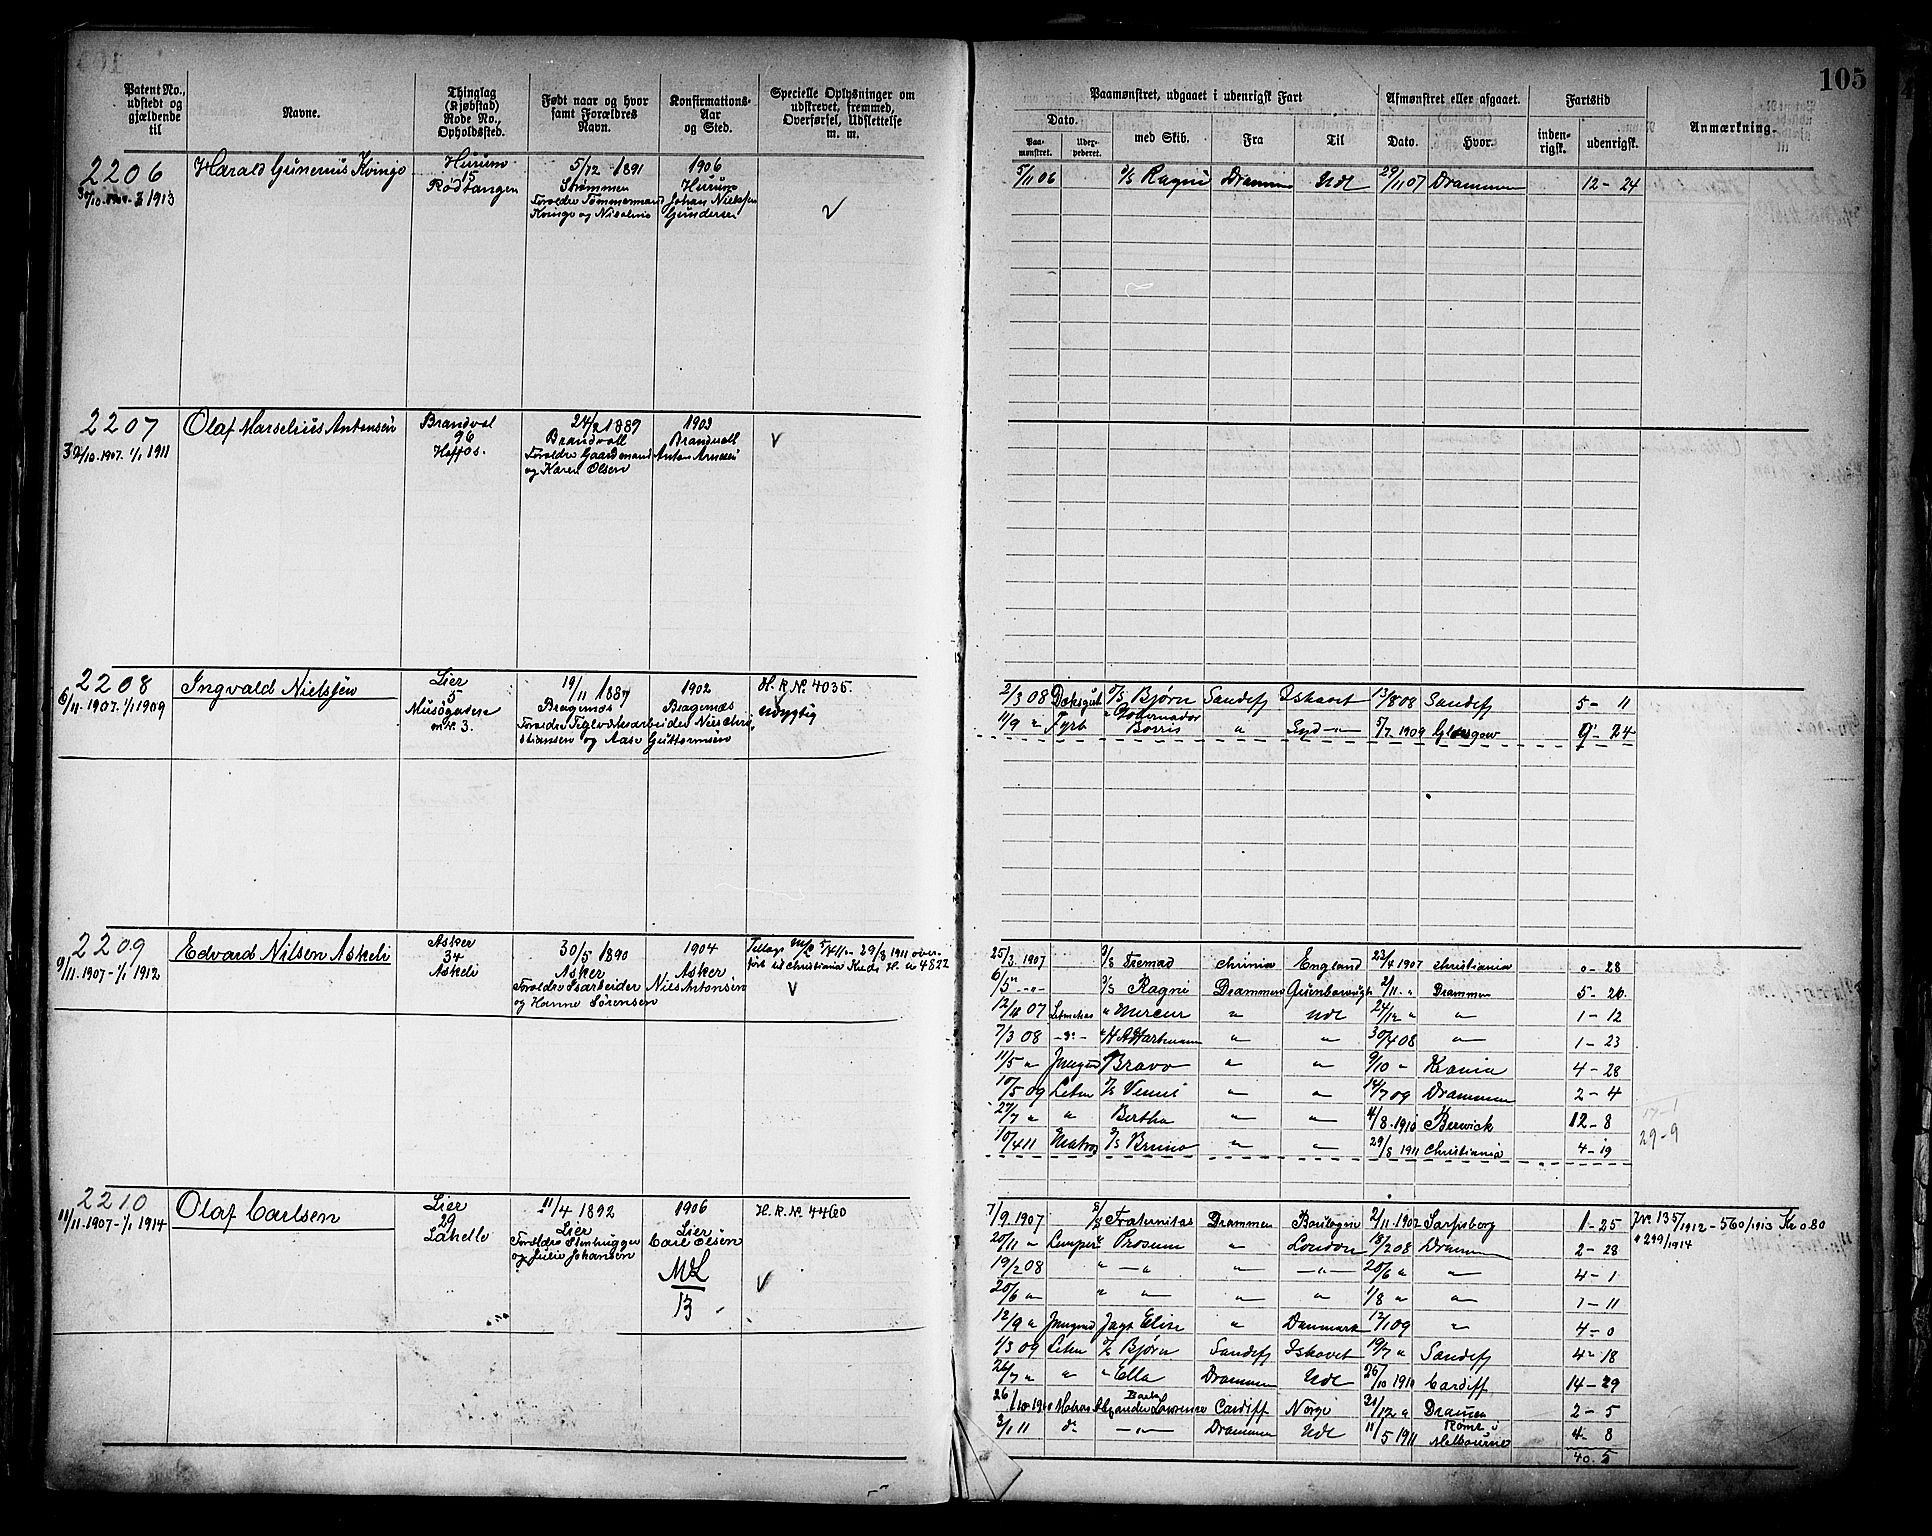 105
Patent No., udstedt og gjældende til
Navne.
Thinglag (Kjøbstad) Rode No., Opholdssted.
Født naar og hvor samt Forældres Navn.
Konfirmations-Aar og Sted.
Specielle Oplysninger om udskrevet, fremmed, Overførsel, Udslettelse m. m.
Paamønstret, udgaaet i udenrigsk Fart
Afmønstret eller afgaaet.
Fartstid
Anmærkning.
Dato.
Paa-mønstret.
med Skib.
Fra
Til
Dato.
Hvor.
inden-rigsk.
udenrigsk.
2206 Harald Gunerius Kvinge Hurum 5/12 1891 1906
15 Strømmen Hurum
Rødtangen Forældre Tømmermand Johan Nielsen
Kvinge og Nicoline Gundersen
5/11 06 S/S Ragni Drammen Udl 29/11 07 Drammen 12 - 24
2207 Olaf Marselius Antonsen Brandvol 1903
96 Brandvoll Brandvoll
30/10. 1907. 1/1 1911 Forældre Gaardmand Anton
og Karen Olsen
2208 Ingvald Nielsen Lier 19/11 1887 1902 H. R. No. 4035.
5 Bragenæs Bragenæs Udygtig
6/11. 1907. 1/1 1909
Forældre Teglverksarbeider Niels Chri
stiansen og Aase Guttormsen
2/3 08 S/S Bjørn Sandefj Ishavet 13/8 08 Sandefj 5 - 11
11/9 " Fyrb " Gouvernador
Borris " Syd - " 5/7 1909 Glasgow 9 - 24
2209 Edvard Nilsen Askeli Asker 30/5 1890 1904
34 Asker Asker
9/11. 1907 - 1/1 1912 Askeli Forældre Isarbeider Niels Antonsen
og Hanne Sørensen
29/8 1911 over-
ført til Christiania Kreds H. a 4822
25/3. 1907 S/S Fremad Chrinia England 23/4 1907 Christiania 0 - 28
6/5 - " - S/S Ragni Drammen 2/11. " Drammen 5 - 26.
07 " Mercur " Udl 24/12 " " 1 - 12
7/3 08 - d° - " " 30/4 08 " 1 - 23
11/5 " Jungm Bravo " " 9/10 " Krania 4 - 28
10/5 09 Letm Venus " " 14/7 09 Drammen 2 - 4
27/7 " " Bertha " " 4/8. 1910 Berwick 12 - 8
10/4 11 Matros S/S Bruno " " 29/8 1911 Christiania 4 - 19
17-1
29-9
2210 Olaf Carlsen Lier 11/4 1892 1906 H. R. No. 4460
29 Lier Lier
11/11. 1907 - 1/1 1914 Lahelle Forældre Stenhugger Carl Olsen
og Julie Johansen
M&L
13
7/9. 1907 S/S Fraternitas Drammen 2/11. 1907 Sarpsborg 1 - 25 Jno 135/1912 - 560/1913 Kr 0.80
20/11 " Prosum " London 18/2 08 Drammen 2 - 28 " 299/1914
19/2 08 " - " " - " - 20/6 " " 4 - 1
20/6 " " " " " 1/8 " " 1 - 11
12/9 " Jungmd Jagt Elise " Danmark 12/1 09 " 4 - 0
4/3 09 Letm Bjørn Sandefj Ishavet 19/7 " Sandefj 4 - 18
26/7 " " " Ella Drammen Udl 26/10 1910 Cardiff 14 - 29
26/10 1910 Matros Bark
Alexander Lawrence Cardiff Norge 31/12 " Drammen 2 - 5
2/1 11 d° - " - Drammen Udl 11/5 1911 Rømt i
Melbourne 4 - 8
40. 5